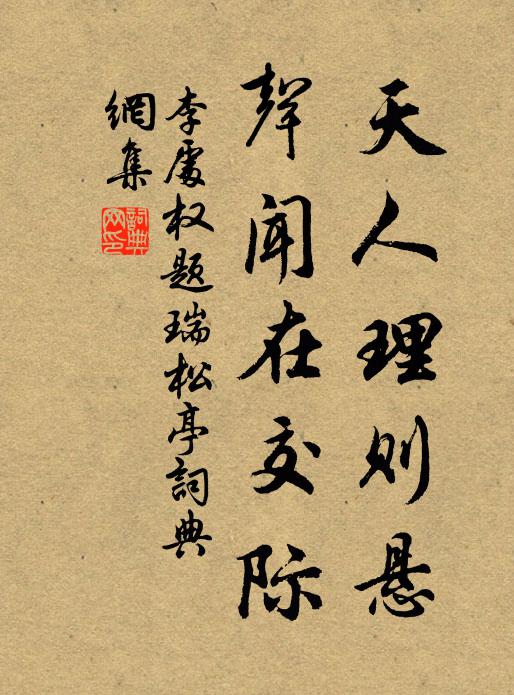 天人理则悬
声闻在交际
李處权题瑞松亭詞典
網集
詞典网印